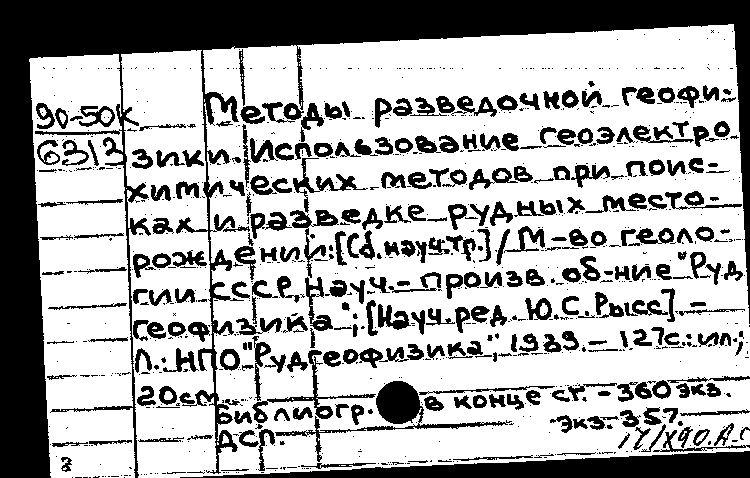 90-50К
6313
Методы разведочной геофи-
зики. Использование геоэлектро
химических методов при поис-
ках и разведке рудных место-
рождений: [Сб. науч. тр.] / М-во геоло-
гии СССР, Науч.- произв. об-ние "Руд
геофизика"; [Науч. ред. Ю.С. Рысс]. -
Л.: НПО "Рудгеофизика", 1989. - 127с.: ил.;
20см
Библиогр. в конце ст. - 360 экз.
ДСП. Экз. 357.